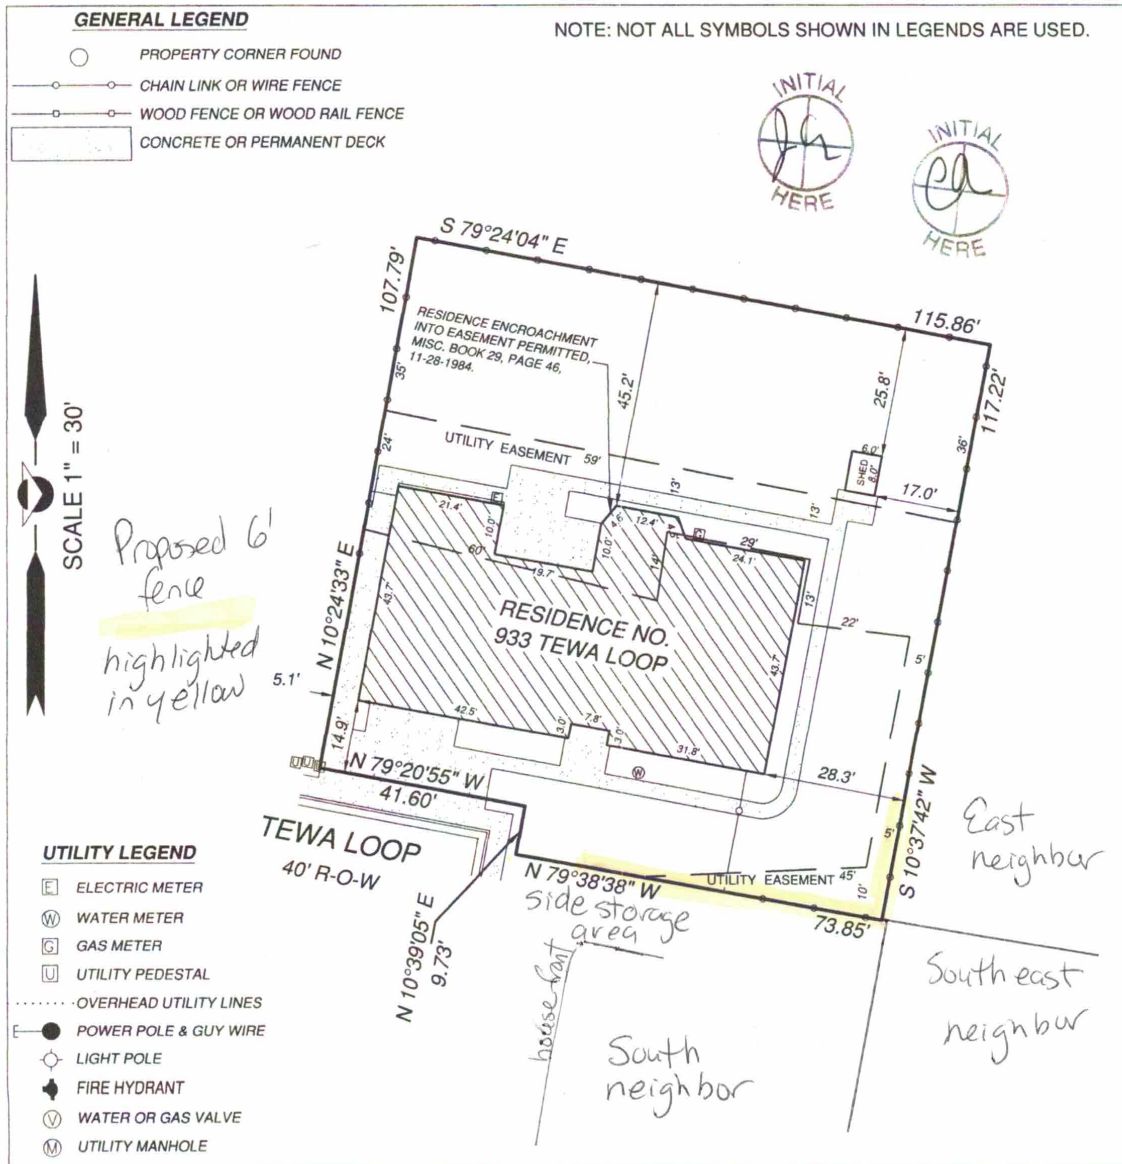 GENERAL LEGEND
PROPERTY CORNER FOUND
CHAIN LINK OR WIRE FENCE
WOOD FENCE OR WOOD RAIL FENCE
CONCRETE OR PERMANENT DECK
NOTE: NOT ALL SYMBOLS SHOWN IN LEGENDS ARE USED.
INITIAL
HERE
INITIAL
HERE
SCALE 1" = 30'
Proposed 6'
fence
highlighted
in yellow
S 79°24'04" E
115.86'
107.79'
117.22'
RESIDENCE ENCROACHMENT
INTO EASEMENT PERMITTED,
MISC. BOOK 29, PAGE 46,
11-28-1984.
45.2'
25.8'
35'
36'
24'
UTILITY EASEMENT 59'
6.0'
SHED
8.0'
17.0'
13'
13'
E
21.4'
10.0'
4.6'
12.4'
G
29'
24.1'
60'
10.0'
14'
19.7'
13'
22'
N 10°24'33" E
43.7'
RESIDENCE NO.
933 TEWA LOOP
43.7'
5'
5.1'
14.9'
42.5'
3.0'
7.8'
3.0'
31.8'
W
28.3'
S 10°37'42" W
UUU
N 79°20'55" W
41.60'
TEWA LOOP
40' R-O-W
5'
10'
UTILITY EASEMENT 45'
N 79°38'38" W
73.85'
N 10°39'05" E
9.73'
side storage
area
house front
East
neighbor
Southeast
neighbor
South
neighbor
UTILITY LEGEND
E ELECTRIC METER
W WATER METER
G GAS METER
U UTILITY PEDESTAL
OVERHEAD UTILITY LINES
E POWER POLE & GUY WIRE
LIGHT POLE
FIRE HYDRANT
V WATER OR GAS VALVE
M UTILITY MANHOLE